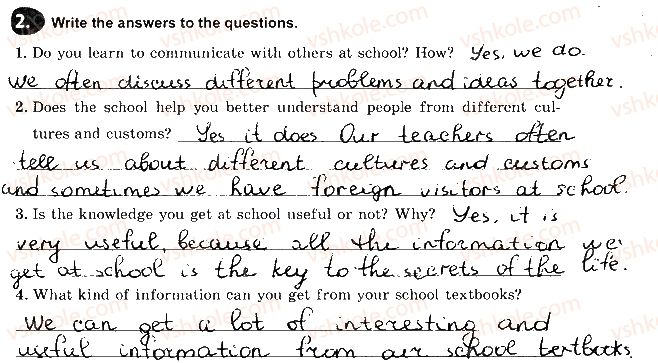 2. Write the answers to the questions.
1. Do you learn to communicate with others at school? How? Yes, we do.
We often discuss different problems and ideas together.
2. Does the school help you better understand people from different cul-
tures and customs? Yes it does Our teachers often
tell us about different cultures and customs
and sometimes we have foreign visitors at school.
3. Is the knowledge you get at school useful or not? Why? Yes, it is
very useful, because all the information we
get at school is the key to the secrets of the life.
4. What kind of information can you get from your school textbooks?
We can get a lot of interesting and
useful information from our school textbooks